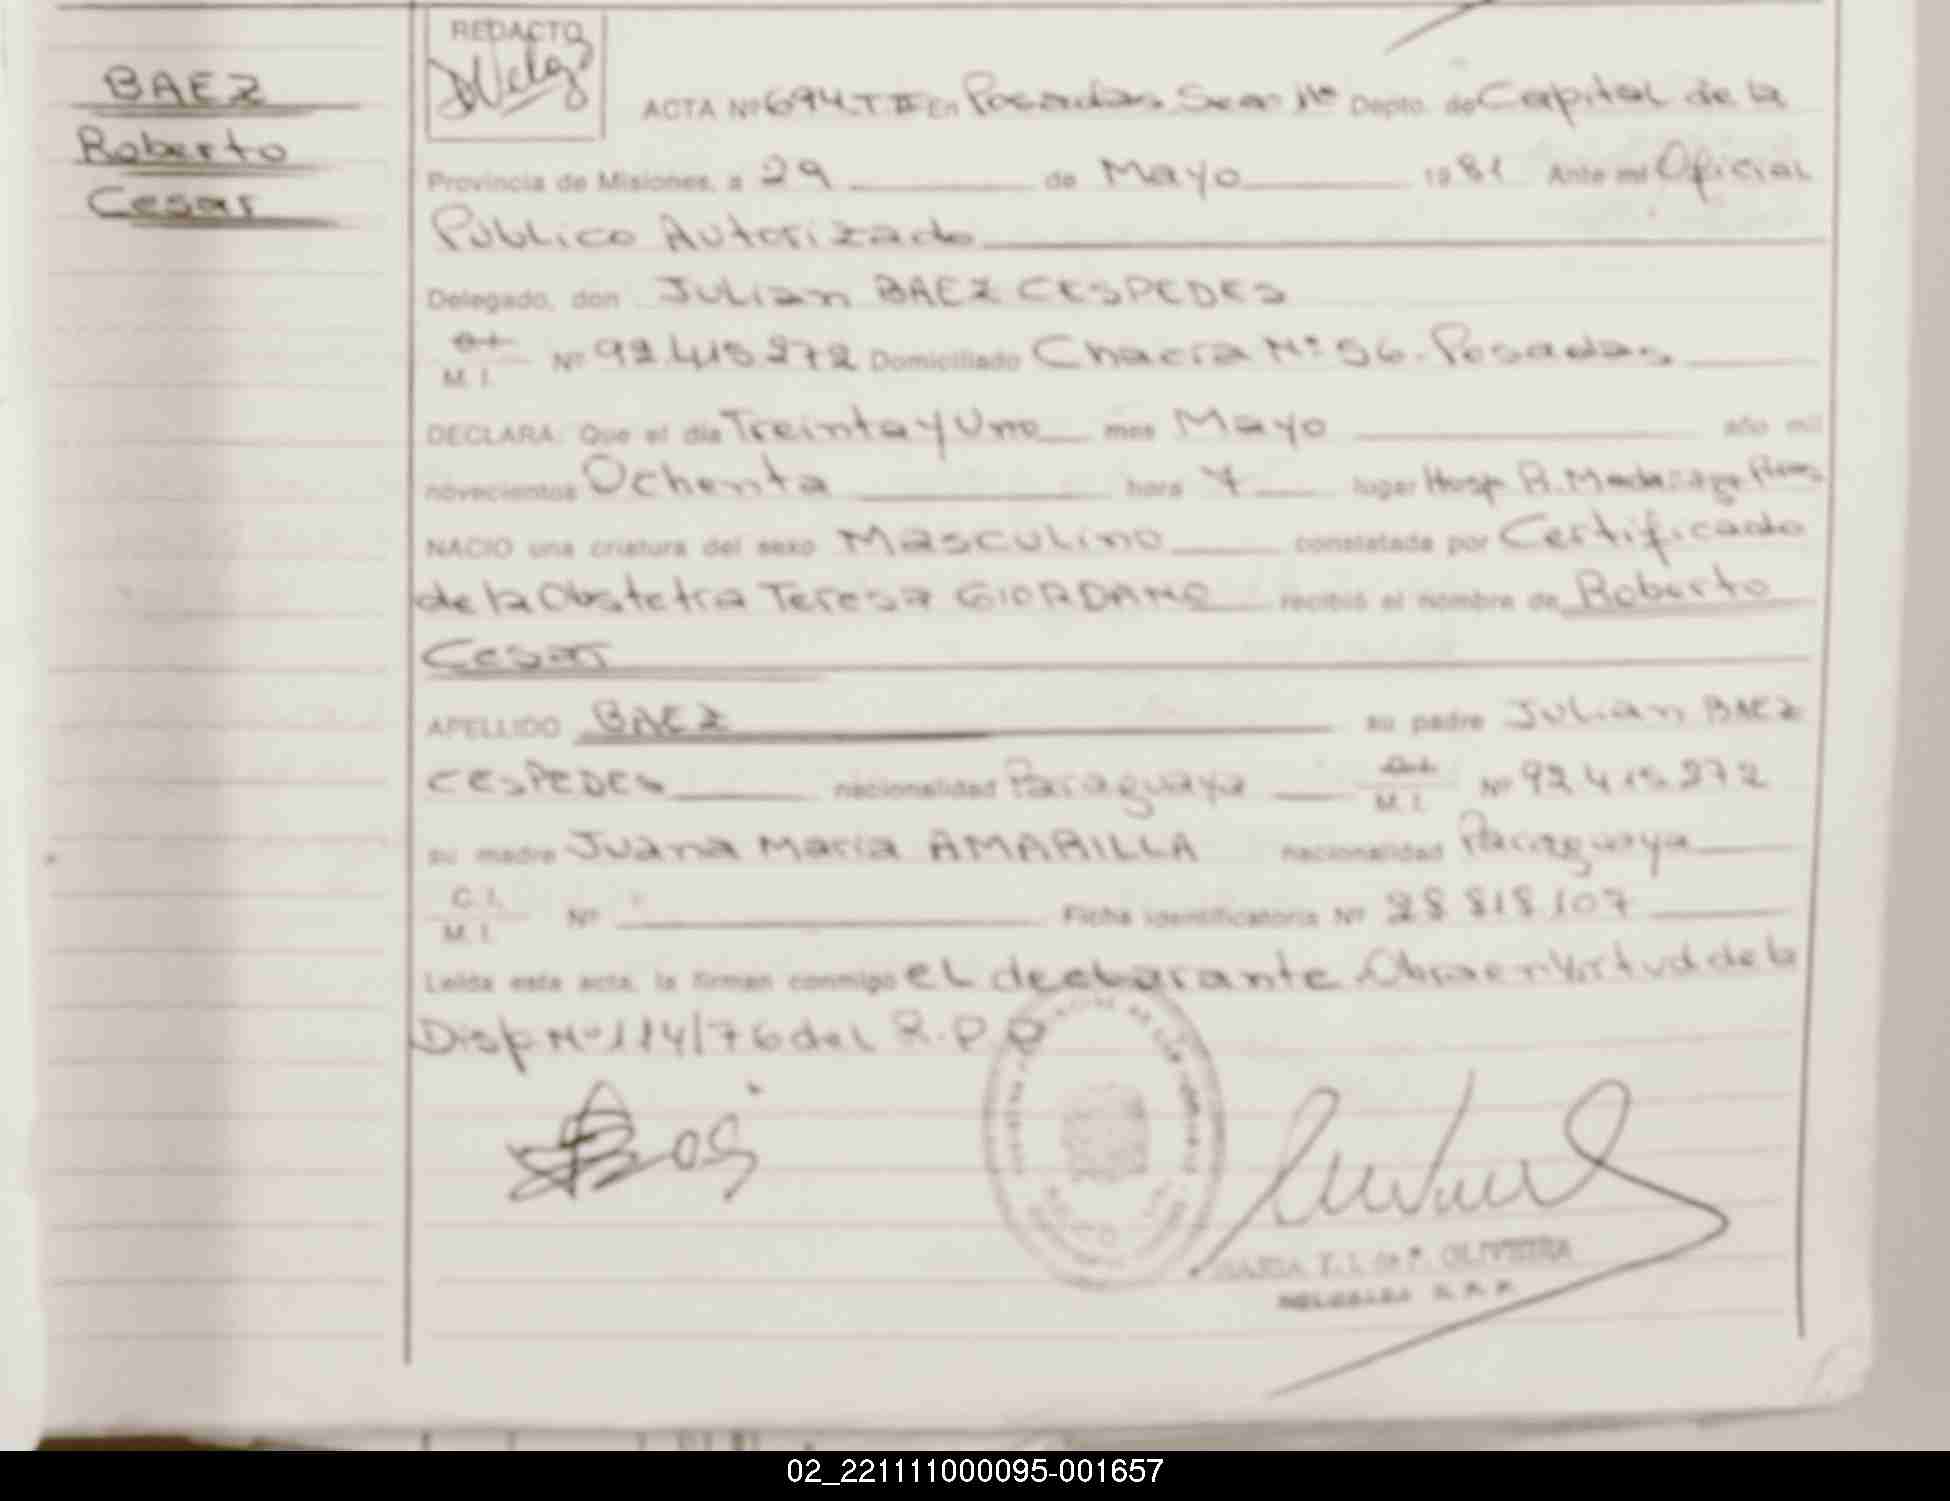 BAEZ
Roberto
Cesar
REDACTO
ACTA Nº 694 T II En Posadas Depto. de Capital de la
Provincia de Misiones, a 29 de Mayo 1981 Ante mi Oficial
Público Autorizado
Delegado, don Julian BAEZ CESPEDES
M. I. Nº 92.415.272 Domiciliado Chacra Nº 56. Posadas
DECLARA: Que el día Treinta y Uno mes Mayo año mil
novecientos Ochenta hora 7 lugar Hosp R. Madariaga
NACIO una criatura del sexo Masculino constatada por Certificado
de la Obstetra Teresa GIORDANO recibió el nombre de Roberto
Cesar
APELLIDO BAEZ su padre Julian BAEZ
CESPEDES nacionalidad Paraguaya M. I. Nº 92.415.272
su madre Juana Maria AMARILLA nacionalidad Paraguaya
C. I.
M. I. Nº Ficha identificatoria Nº 28 818 107
Leída esta acta, la firman conmigo el declarante Obra en Virtud de la
Disp Nº 114/76 del R.P.P
OLIVEIRA
02_221111000095-001657